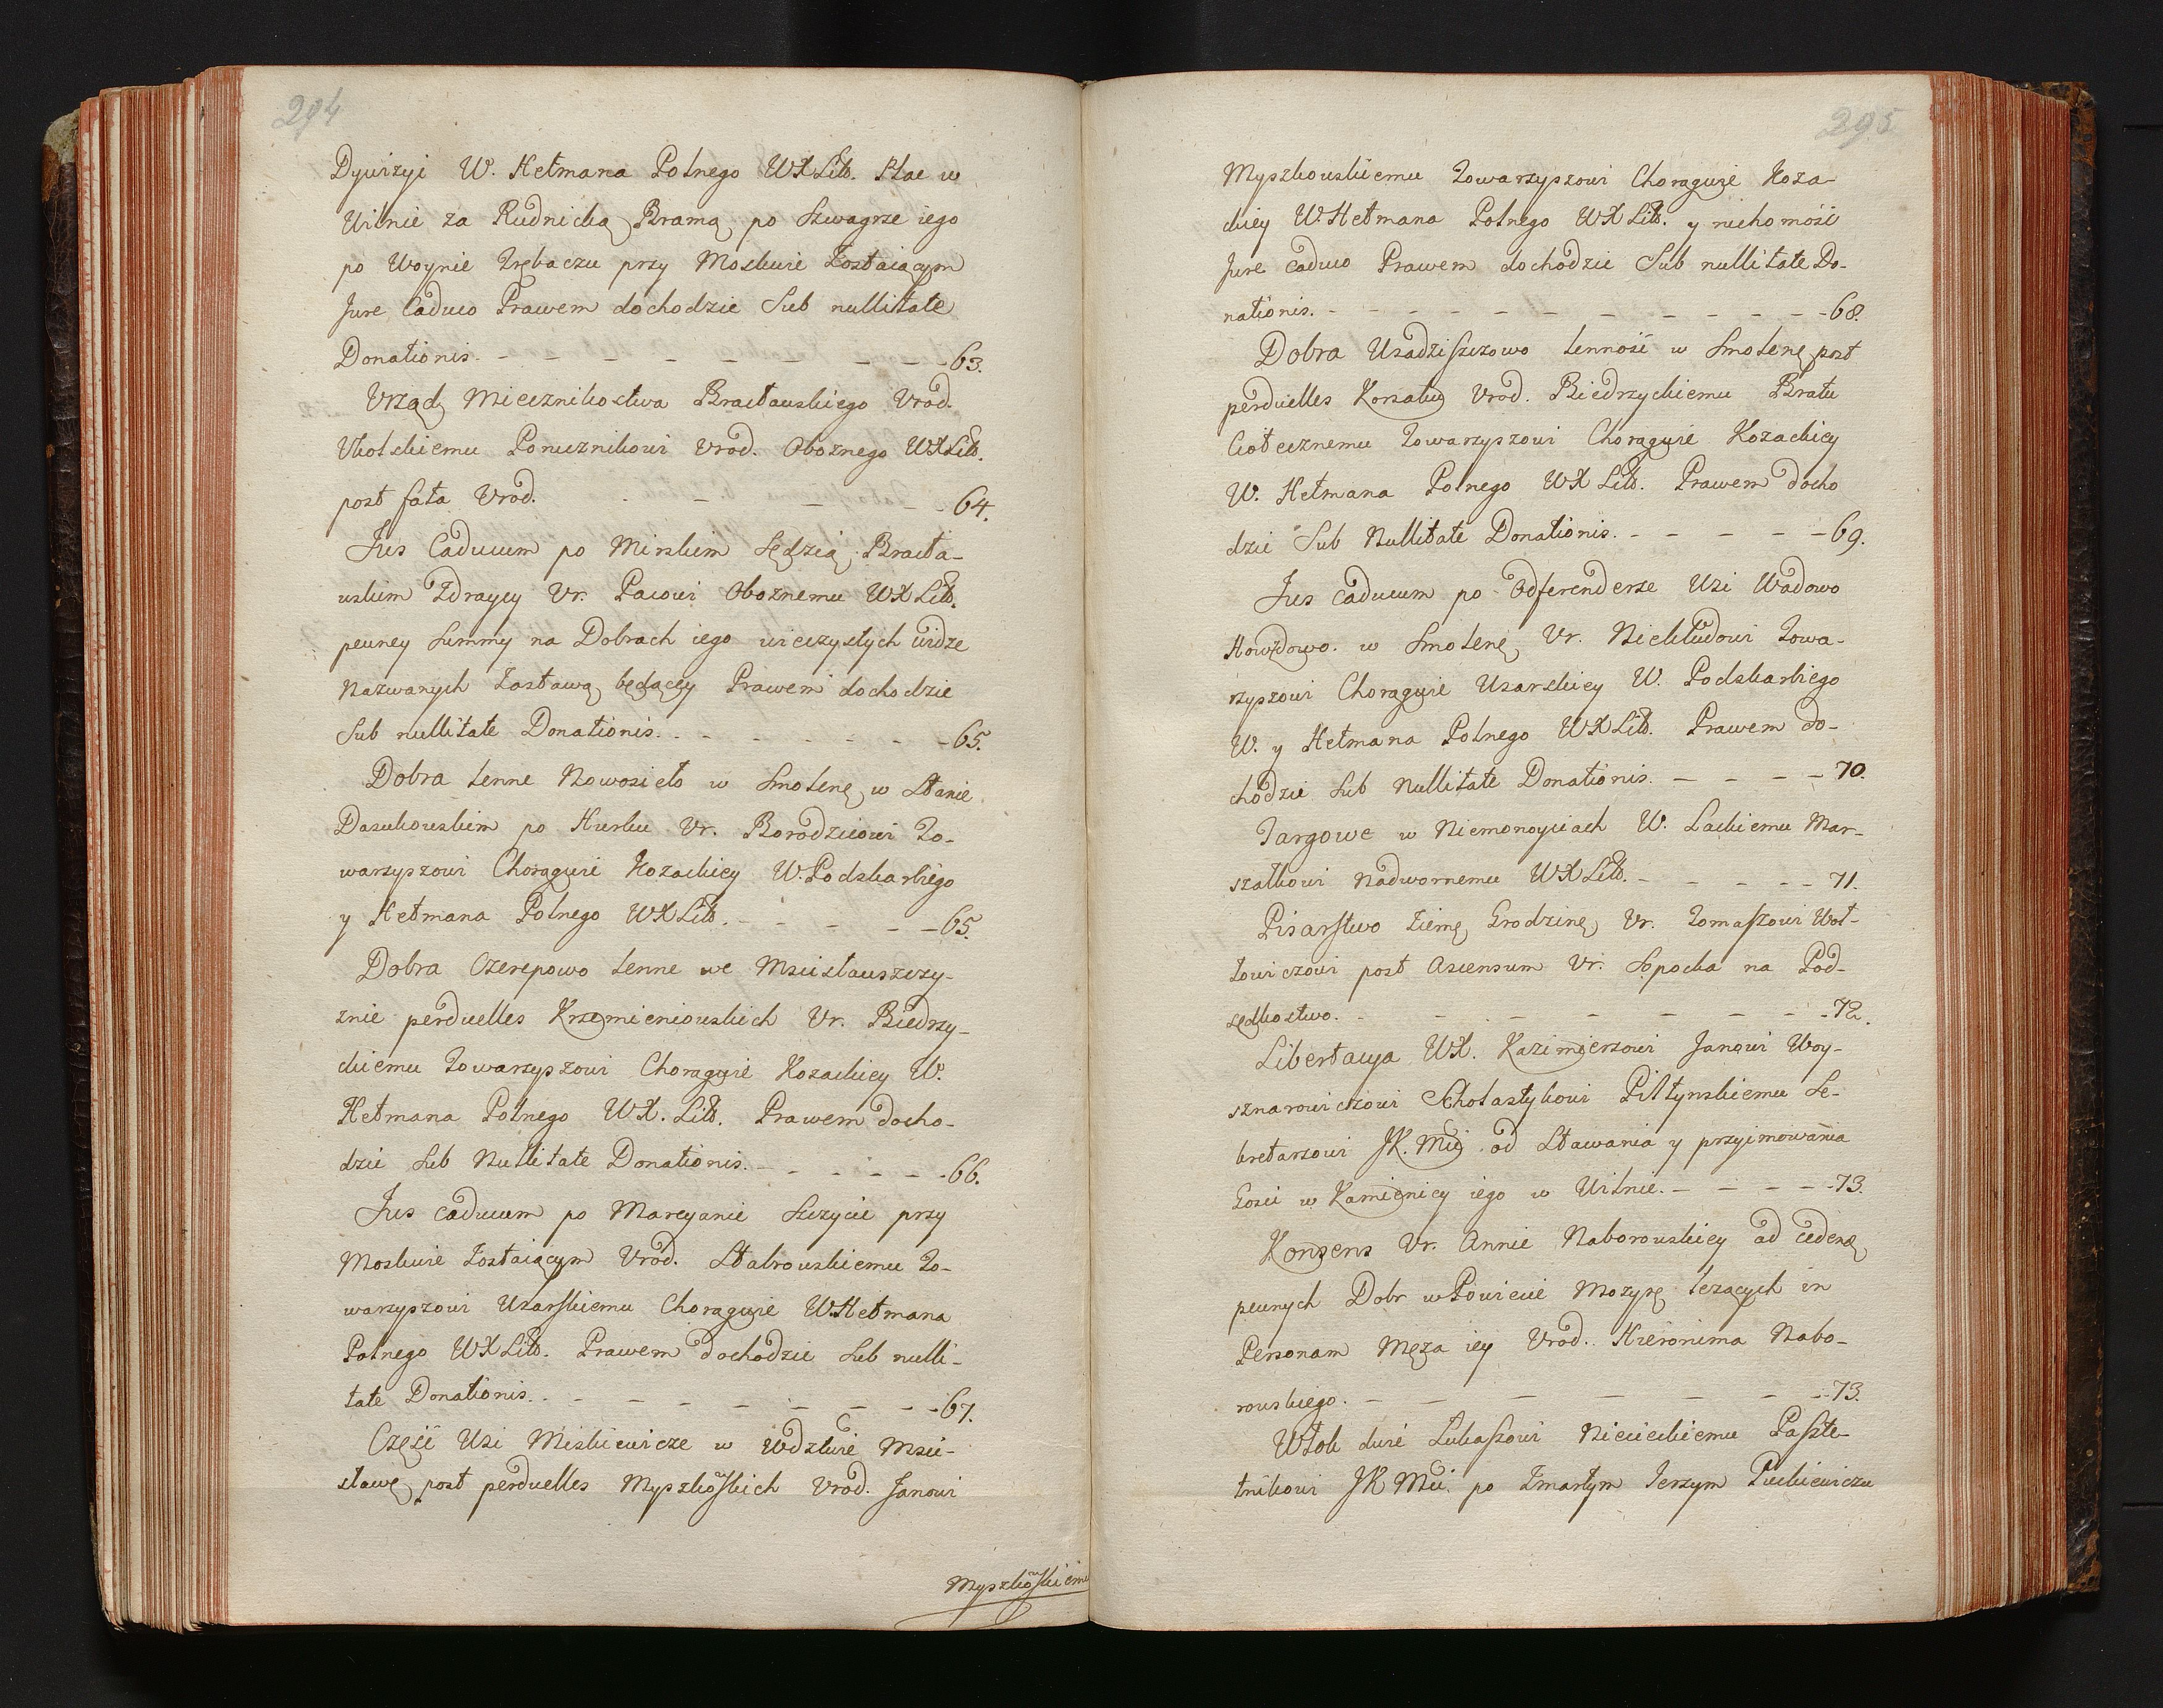 294
Dywizyi W. Hetmana Polnego WXLitt. Plac w
Wilnie za Rudnicką Bramą po Szwagrze iego
po Woynie Trębaczu przy Moskwie Zostaiącym
Jure Caduco Prawem dochodzic Sub nullitate
Donationis. - - - - - - - - 63.
Vrząd Miecznikostwa Bracławskiego Vrod.
Vkolskiemu Porucznikowi Vrod. Oboznego WXLitt.
post fata Vrod. - - - - - 64.
Jus Caducum po Mirskim Sędzią Bracła-
wskim Zdraycy Vr. Pacowi Oboznemu WXLitt.
pewney Summy na Dobrach iego wieczystych widze
Nazwanych Zastawą będącey Prawem dochodzic
Sub nullitate Donationis. - - - - - - - 65.
Dobra Lenne Nowosioło w Smolenę w Stanie
Dasuhowskim po Hurku Vr. Borodzicowi To-
warzyszowi Chorągwie Kozackiey W. Podskarbiego
y Hetmana Polnego WXLitt. - - - - - 65.
Dobra Czerepowo Lenne we Mscisławszczy-
znie perduelles Krzemieniowskich Vr. Biedrzy-
ckiemu Towarzyszowi Chorągwie Kozackiey W.
Hetmana Polnego WX. Litt. Prawem docho-
dzic Sub Nullitate Donationis. - - - - - 66.
Jus Caducum po Marcyanie Szczycie przy
Moskwie Zostaiącym Vrod. Stabrowskiemu To-
warzyszowi Uzarskiemu Chorągwie W. Hetmana
Polnego WXLitt. Prawem dochodzic Sub nulli-
tate Donationis. - - - - - - - 67.
Częsc Wsi Miskiewicze w Wdztwie Msci-
sławę post perduelles Myszkowskich Vrod. Janowi
Myszkowskiemu
295
Myszkowskiemu Towarzyszowi Chorągwie Koza-
ckiey W. Hetmana Polnego WXLitt. y ruchomosc
Jure Caduco Prawem dochodzic Sub nullitate Do-
nationis. - - - - - - - - - - - 68.
Dobra Usadziszczowo Lennosc w Smolenę post
perduelles Korsaków Vrod. Biedrzyckiemu Bratu
Ciotecznemu Towarzyszowi Chorągwie Kozackiey
W. Hetmana Polnego WXLitt. Prawem docho
dzic Sub Nullitate Donationis. - - - - - 69.
Jus Caducum po Odferenderze Wsi Wadowo
Howzdowo w Smolenę Vr. Niekludowi Towa-
rzyszowi Chorągwie Uzarskiey W. Podskarbiego
W. y Hetmana Polnego WXLitt. Prawem do-
chodzic Sub Nullitate Donationis. - - - - 70.
Targowe w Niemonoyciach W. Lackiemu Mar-
szałkowi Nadwornemu WXLitt. - - - - - 71.
Pisarstwo Ziemę Grodzinę Vr. Tomaszowi Woł-
łowiczowi post Ascensum Vr. Sopocka na Pod-
sędkostwo. - - - - - - - - 72.
Libertacya WX. Kazimierzowi Janowi Woy-
sznarowiczowi Scholastykowi Piltynskiemu Se-
kretarzowi JK. Mci od Stawania y przyimowania
Gosci w Kamienicy iego w Wilnie. - - - - - 73.
Konsens Vr. Annie Naborowskiey ad cedenę
pewnych Dobr w Powiecie Mozyrę lezących in
Personam Męza iey Vrod. Hieronima Nabo-
rowskiego. - - - - - - - 73.
Włok dwie Łukaszowi Nieciecki emu Paszte-
tnikowi JK Mci. po Zmarłym Jerzym Puckiewiczu